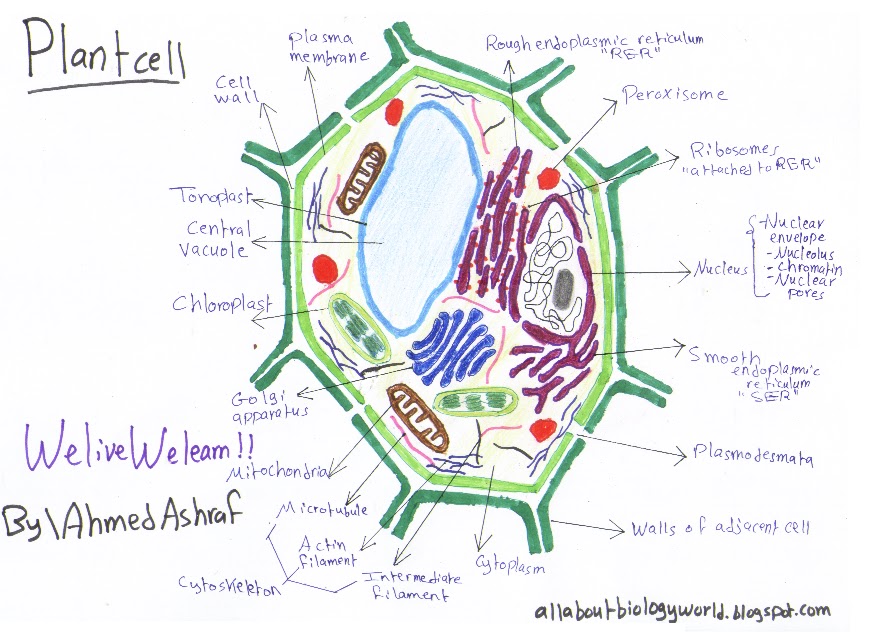 Plant cell
plasma
membrane
Rough endoplasmic reticulum
"RER"
Cell
wall
Peroxisome
Ribosomes
"attached to RER"
Tonoplast
Central
Vacuole
Nucleus
-Nuclear
envelope
-Nucleolus
-Chromatin
-Nuclear
pores
Chloroplast
Smooth
endoplasmic
reticulum
"SER"
Golgi
apparatus
We live We learn!!
Mitochondria
Plasmodesmata
By\Ahmed Ashraf
Microtubule
Walls of adjacent cell
Actin
filament
Cytoplasm
Cytoskeleton
Intermediate
filament
allaboutbiologyworld.blogspot.com